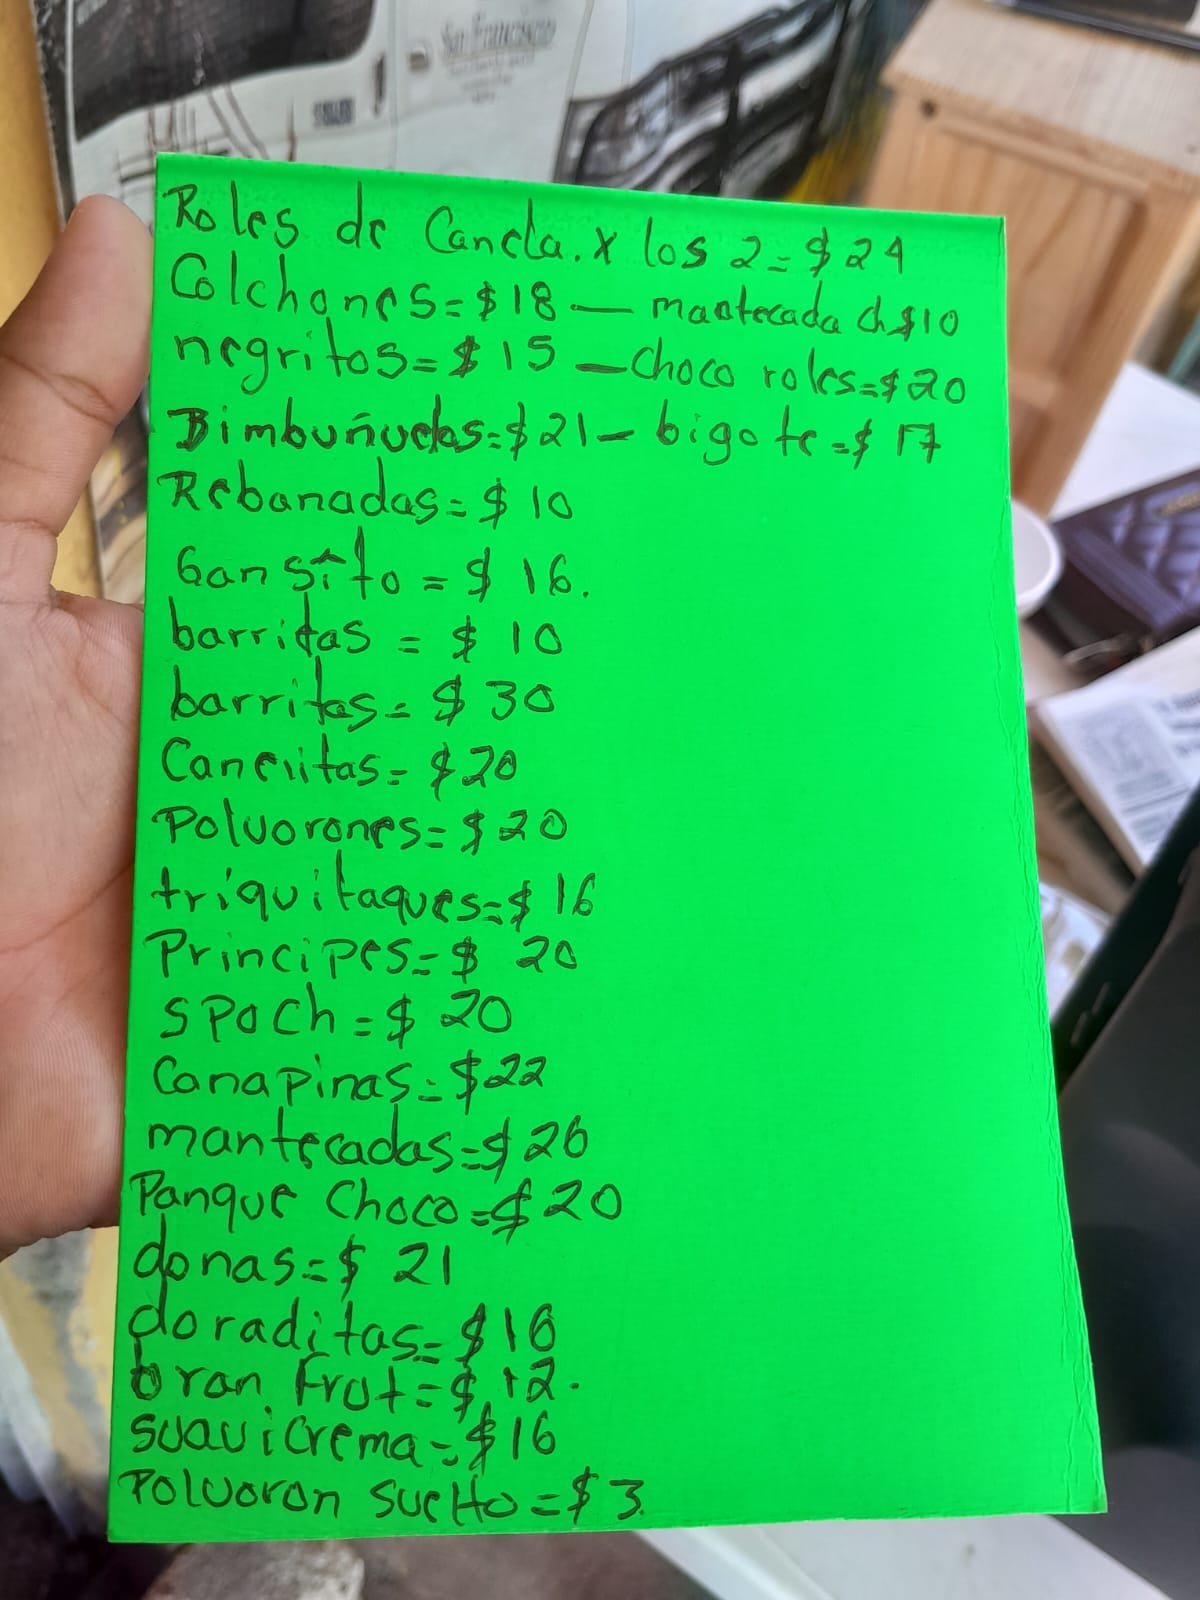 San Francisco
Roles de Canela. x los 2=$24
Colchones=$18 — mantecada ch $10
negritos=$15 — choco roles=$20
Bimbuñuelos=$21 — bigote=$17
Rebanadas=$10
Gansito=$16.
barritas=$10
barritas=$30
Canelitas=$20
Polvorones=$20
triquitaques=$16
Principes=$20
spoch=$20
Canapinas=$22
mantecadas=$26
Panque Choco=$20
donas=$21
doraditas=$16
bran Frut=$12.
suavicrema=$16
Polvoron suelto=$3.